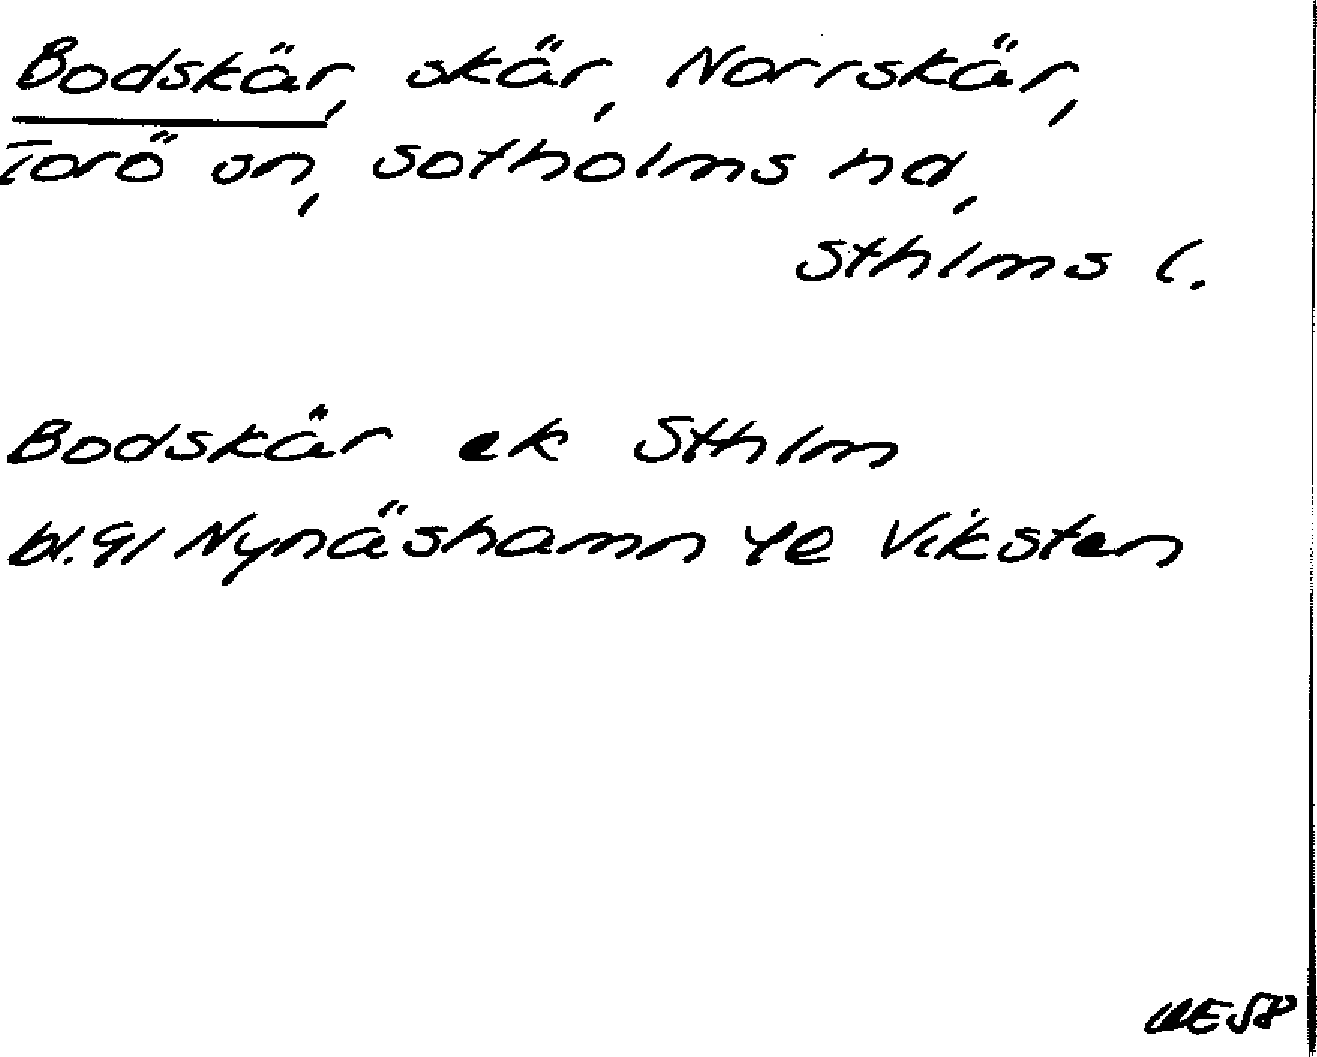 Bodskär, skär, Norrskär,
Torö sn, Sotholms hd,
Sthlms l.
Bodskär ek Sthlm
bl. 91 Nynäshamn 4e Viksten